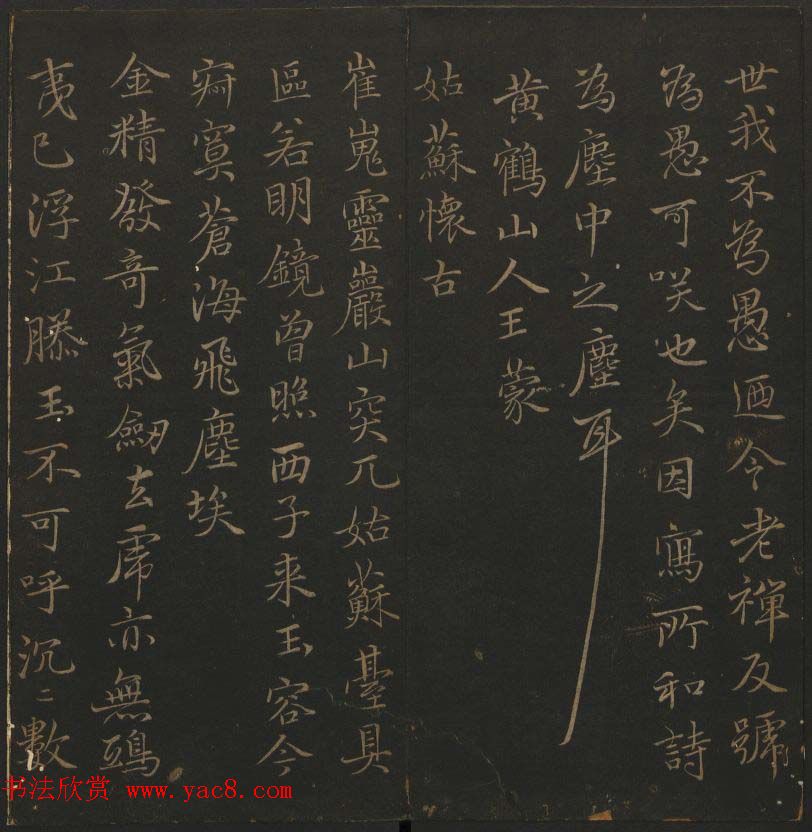 世我不為愚迺今老禪反號
為愚可咲也矣因寫所和詩
為塵中之塵耳
黃鶴山人王蒙
姑蘇懷古
崔嵬靈巖山突兀姑蘇臺具
區若明鏡曾照西子來玉容今
寂寞蒼海飛塵埃
金精發奇氣劒去虎亦無鴟
夷已浮江賸玉不可呼沉〻數
书法欣赏 www.yac8.com